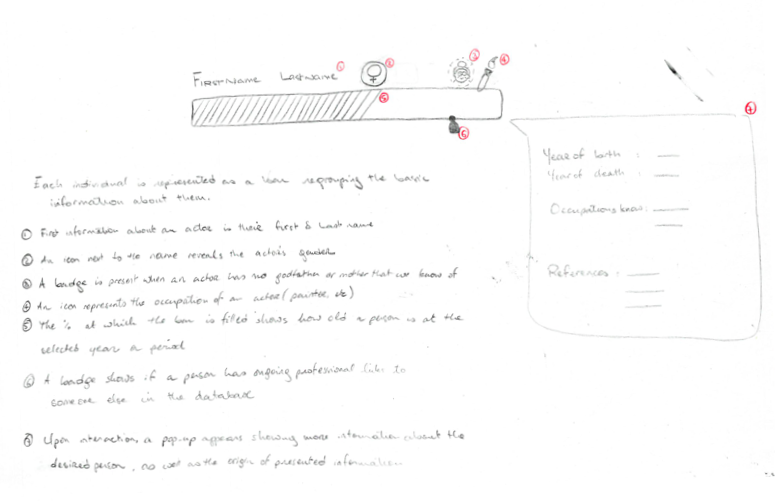 ① ② ③ ④
Firstname Lastname
⑤
⑥
⑦
Year of birth :
Year of death :
Occupations know :
References :
Each individual is represented as a bar regrouping the basic
information about them.
① First information about an actor is their first & last name
② An icon next to the name reveals the actor's gender
③ A badge is present when an actor has no godfather or mother that we know of
④ An icon represents the occupation of an actor (painter, etc)
⑤ The % at which the bar is filled shows how old a person is at the
selected year or period
⑥ A badge shows if a person has ongoing professional links to
someone else in the database
⑦ Upon interaction, a pop-up appears showing more information about the
desired person, as well as the origin of presented information